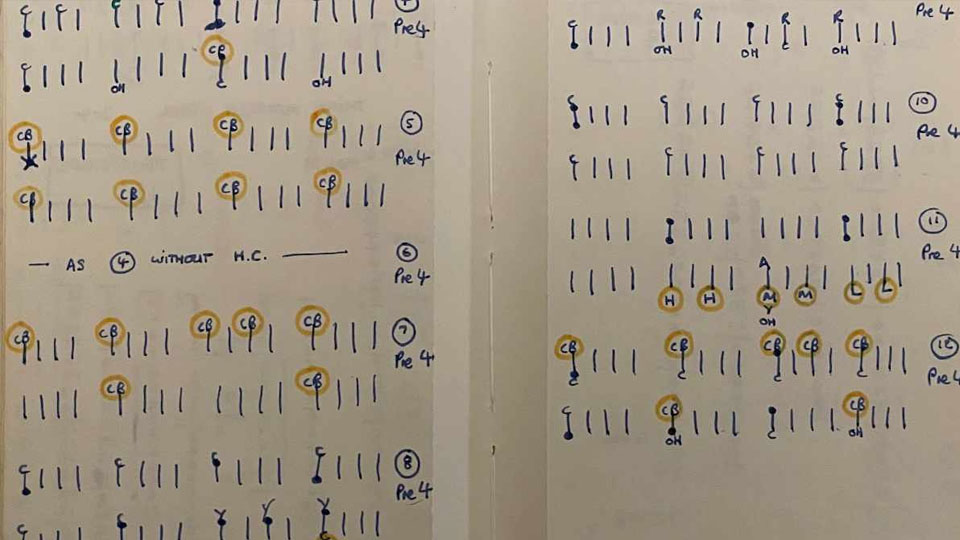 Pre 4
CB
C OH C OH
CB CB CB CB 5
Pre 4
CB CB CB CB
— AS 4 WITHOUT H.C. — 6
Pre 4
CB CB CB CB CB 7
Pre 4
CB CB
C C C C 8
Pre 4
C C Y Y Y
Pre 4
C R R R R
OH OH C OH
C C C C 10
Pre 4
C C C C
11
Pre 4
A
H H M M L L
Y
OH
CB CB CB CB CB 12
C C C C
Pre 4
C CB CB
OH C OH